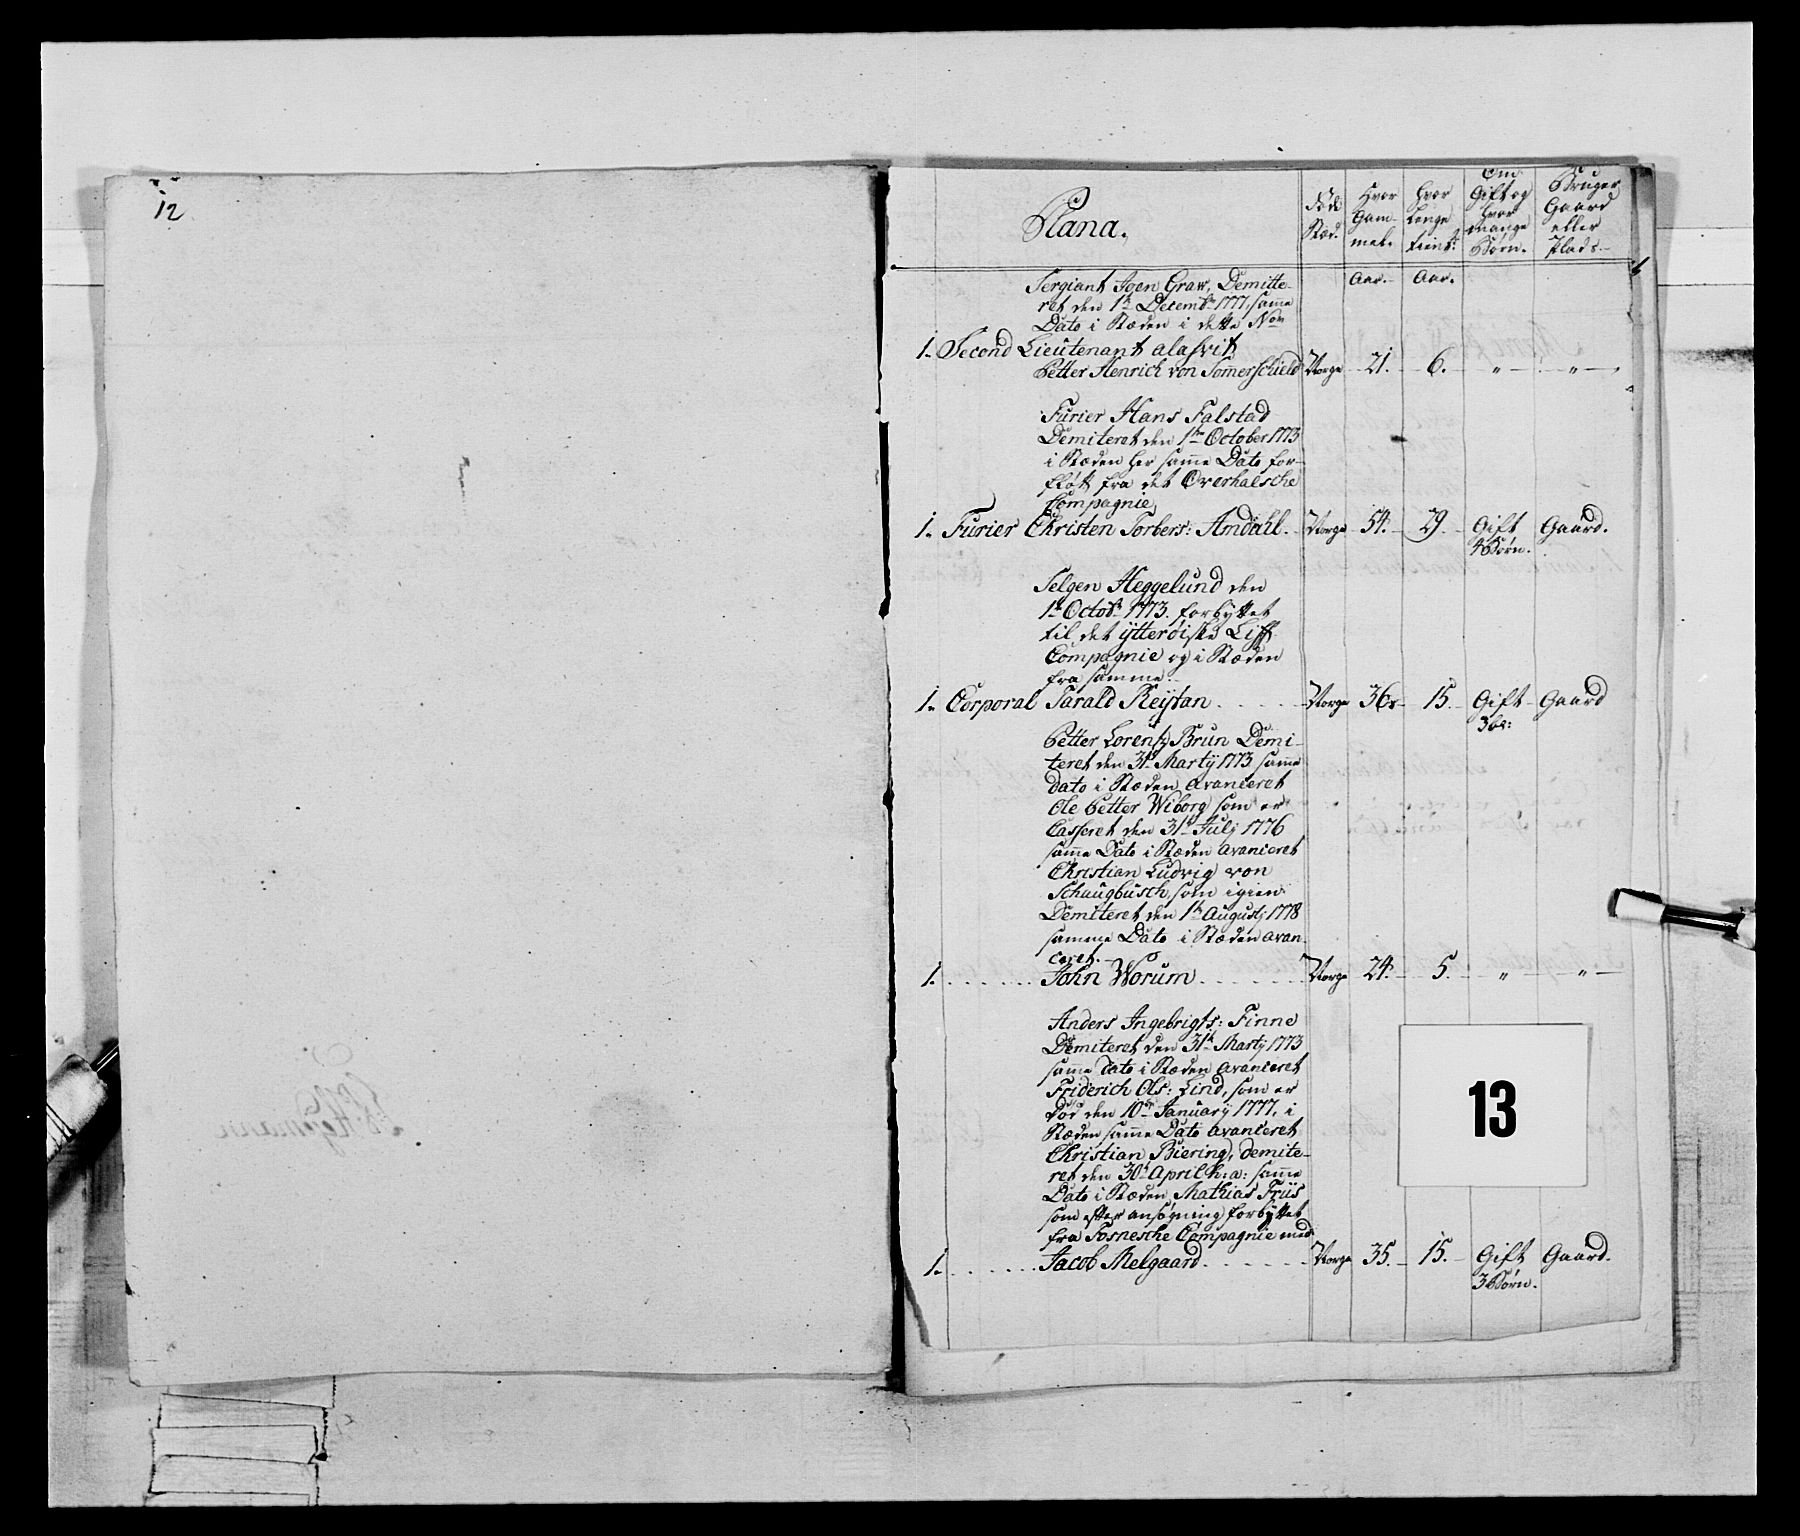 12
Plana.
Føde Stæd.
Hvor Gam- mel.
Hvor Lenge tient:
Om Gift og hvor mange Børn.
Bruger Gaard eller Plads.
Aar. Aar.
Sergiant Joen Graw, Demitte-
ret den 1te Decembr 1771, samme
Dato i Stæden i dette No
1. Second Lieutenant alasvit
Petter Henrich von Sommerschield Norge 21. 6. " "
Furier Hans Falstad
Demiteret den 1te October 1773
i Stæden her samme Dato for-
fløtt fra det Overhalsche
Compagnie,
1. Furier Christen Torbers: Amdahl. Norge 54. 29. Gift Gaard.
4 Børn.
Selgen Heggelund den
1te Octobr 1773. forbyttet
til det ytterøiske Liff
Compagnie og i Stæden
fra samme.
1. Corporal Tarald Reijtan Norge 36 15. Gift Gaard
3 br:
Petter Lorentz Brun Demi-
teret den 31te Martij 1773 samme
dato i Stæden avanceret
Ole Petter Wiborg som er
Casseret den 31te Julj 1776
samme Dato i Stæden avanceret
Christian Ludvig von
Schaugbusch, som igien
Demiteret den 1te Augustj 1778
samme Dato i Stæden avan-
ceret.
1. John Worum Norge 24. 5. " "
Anders Ingebrigts: Finne
Demiteret den 31te Martij 1773
samme dato i Stæden avanceret
Friderich Ols: Lind, som er
død den 10de January 1777, i
Stæden samme Dato avanceret
Christian Biering, demite-
ret den 30te April h: a: samme
Dato i Stæden Mathias Friis
som efter ansøgning forbyttet
fra Fosnesche Compagnie med
1. Jacob Melgaard Norge 35. 15. Gift Gaard.
3 Børn.
13